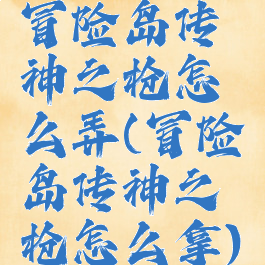 冒险岛传
神之枪怎
么弄(冒险
岛传神之
枪怎么拿)